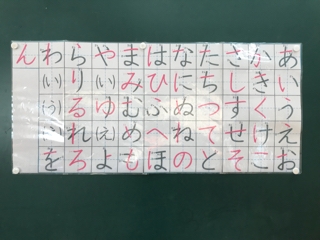 あいうえお
かきくけこ
さしすせそ
たちつてと
なにぬねの
はひふへほ
まみむめも
や(い)ゆ(え)よ
らりるれろ
わ(い)(う)(え)を
ん